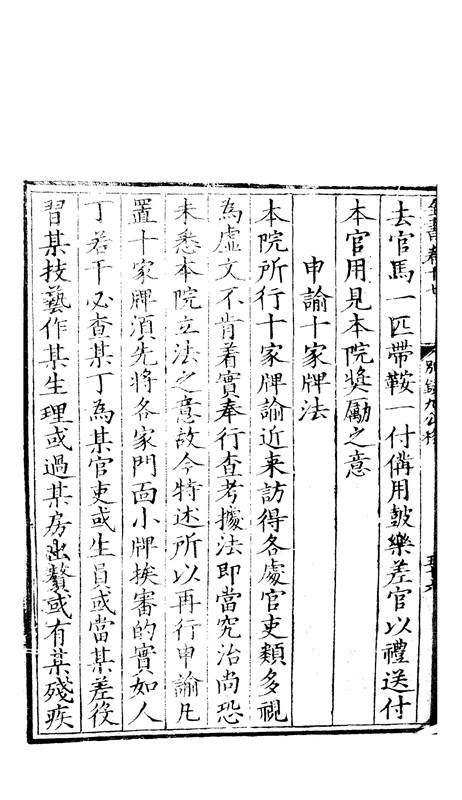 全書卷十七
別錄九公移
去官馬一匹帶鞍一付備用鼓樂差官以禮送付
本官用見本院奬勵之意
申諭十家牌法
本院所行十家牌諭近来訪得各處官吏類多視
為虛文不肯着實奉行查考據法即當究治尚恐
未悉本院立法之意故今特述所以再行申諭凡
置十家牌須先將各家門面小牌挨審的實如人
丁若干必查某丁為某官吏或生員或當某差役
習某技藝作某生理或過某房出贅或有某殘疾